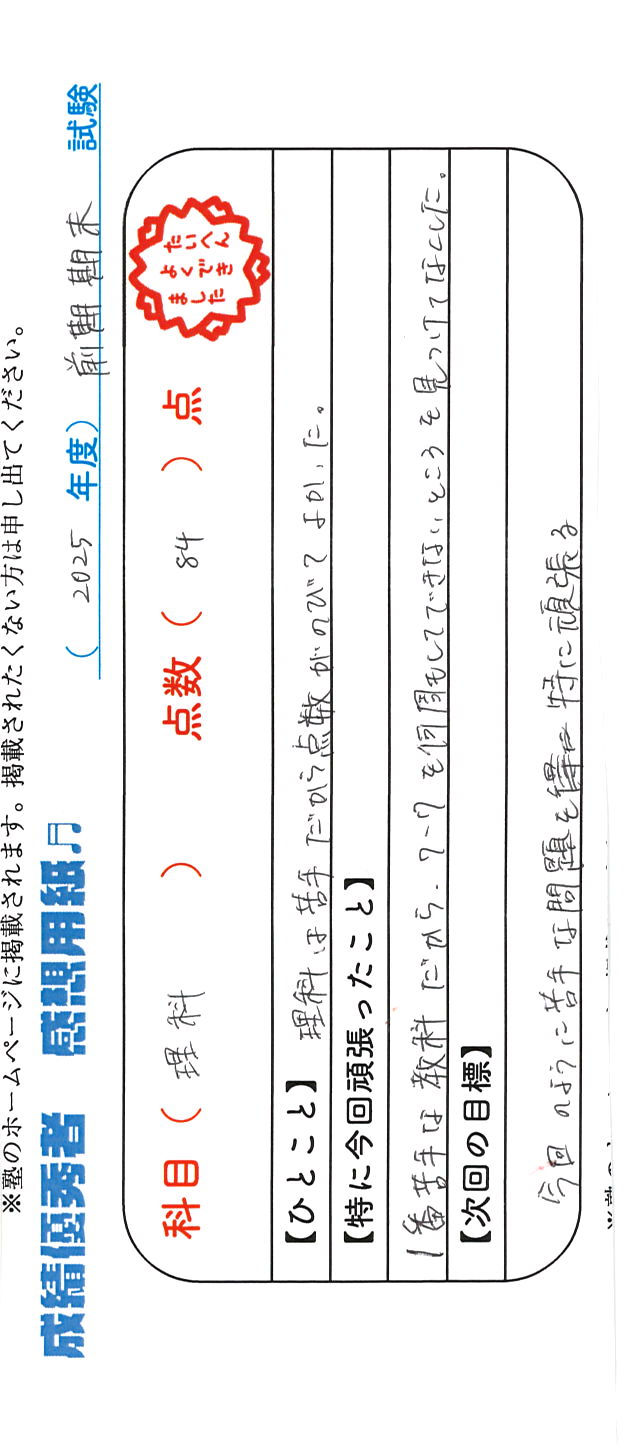 ※塾のホームページに掲載されます。掲載されたくない方は申し出てください。
成績優秀者 感想用紙♬
( 2025 年度) 前期期末 試験
科目 ( 理科 ) 点数 ( 84 ) 点
たいへん
よくでき
ました
【ひとこと】 理科は苦手だから点数がのびてよかった。
【特に今回頑張ったこと】
1番苦手な教科だから、ワークを何周もしてできないところを見つけてなくした。
【次回の目標】
今回のように苦手な問題を特に頑張る